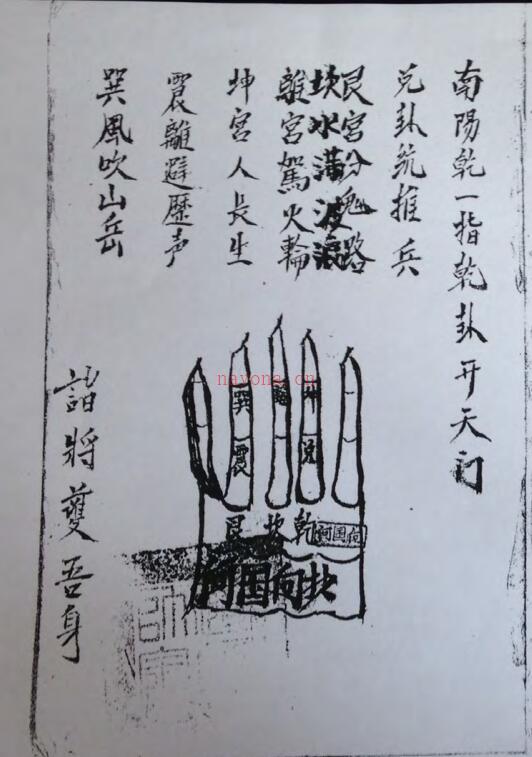 南陽乾一指乾卦开天门
兑卦統推兵
艮宫分鬼路
坎水满波浪
離宫駕火輪
坤宫人長生
震離避歷声
巽風吹山岳
諸將護吾身
巽 離 坤
震 兑
艮 坎 乾
nayona.cn